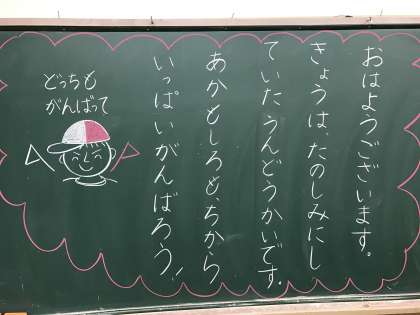 おはようございます。
きょうは、たのしみにし
ていたうんどうかいです。
あかもしろも、ちから
いっぱいがんばろう!
どっちも
がんばって